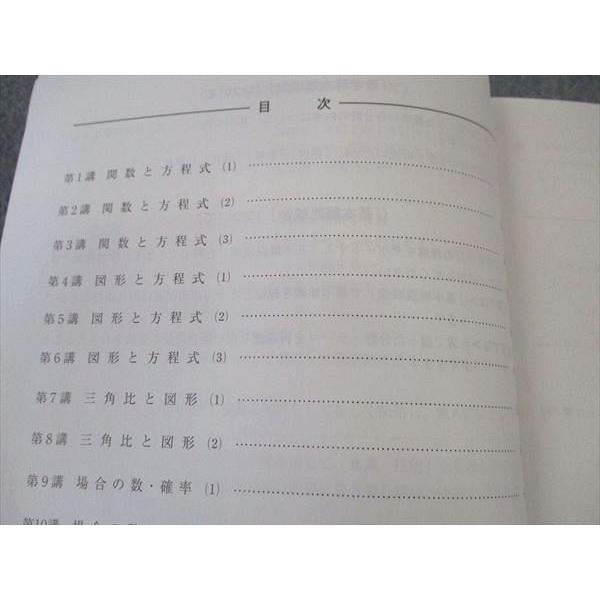 目 次
第1講 関数と方程式 (1)
第2講 関数と方程式 (2)
第3講 関数と方程式 (3)
第4講 図形と方程式 (1)
第5講 図形と方程式 (2)
第6講 図形と方程式 (3)
第7講 三角比と図形 (1)
第8講 三角比と図形 (2)
第9講 場合の数・確率 (1)
第10講 場合の数